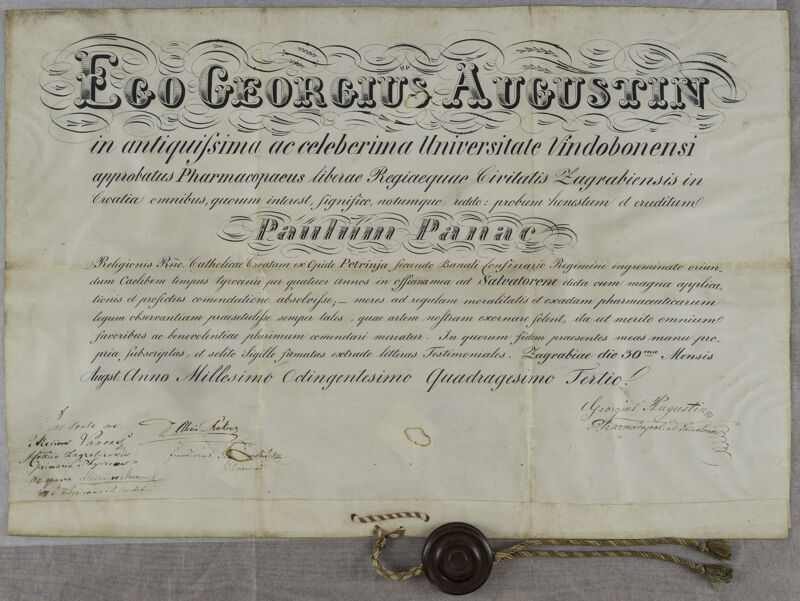 EGO GEORGIUS AUGUSTIN
in antiquiſsima ac celeberima Universitate Vindobonensi
approbatus Pharmacopaeus liberae Regiaequae Civitatis Zagrabiensis in
Croatia omnibus, quorum interest, significo, notumque reddo: probum honestum et eruditum
Paulum Panac
Religionis Rño. Catholicae Croatam ex Opido Petrinja secundo Banali Confinario Regimini ingreminato oriun-
dum Caelibem tempus tyrocinii per quatuor annos in officina mea ad Salvatorem dicta cum magna applica-
tionis et profectus comendatione absolviſse, — mores ad regulam moralitatis et exactam pharmaceuticarum
legum observantiam praesetuliſse semper tales, quae artem nostram exornare solent, ita ut merito omnium
favoribus ac benevolentiae plurimum comendari mereatur. In quorum fidem praesentes meas manu pro-
pria subscriptas, et solito Sigillo firmatas extrado litteras Testimoniales. Zagrabiae die 30ma Mensis
Augst. Anno Millesimo Octingentesimo Quadragesimo Tertio.
Georgius Augustin
Pharmacopae ad Salvatorem
Praesente me
Zagrabiensis
Physico